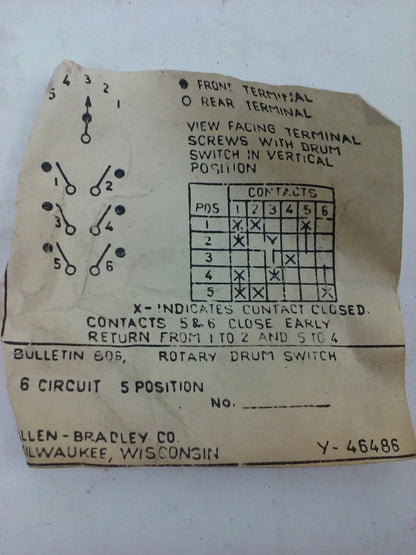 5 4 3 2 1
● FRONT TERMINAL
○ REAR TERMINAL
VIEW FACING TERMINAL
SCREWS WITH DRUM
SWITCH IN VERTICAL
POSITION
1 2
3 4
5 6
CONTACTS
POS 1 2 3 4 5 6
1 X X X
2 X X
3 X
4 X X
5 X X X
X-INDICATES CONTACT CLOSED.
CONTACTS 5 & 6 CLOSE EARLY
RETURN FROM 1 TO 2 AND 5 TO 4
BULLETIN 806, ROTARY DRUM SWITCH
6 CIRCUIT 5 POSITION
NO.
LLEN-BRADLEY CO.
ILWAUKEE, WISCONSIN Y-46486